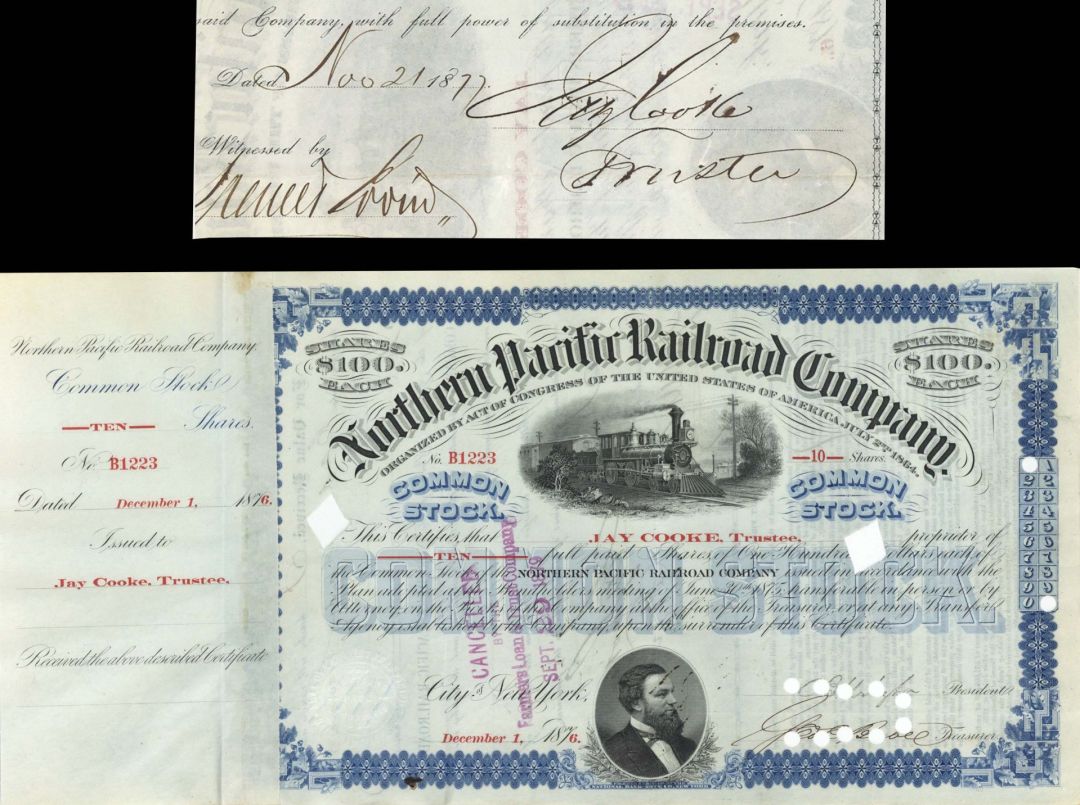 said Company, with full power of substitution in the premises.
Dated Nov 21 1877 Jay Cooke
Trustee
Witnessed by
Northern Pacific Railroad Company.
Common Stock
—TEN— Shares.
No. B1223
Dated December 1, 1876.
Issued to
Jay Cooke, Trustee.
Received the above described Certificate
SHARES
$100.
EACH
SHARES
$100.
EACH
Northern Pacific Railroad Company.
ORGANIZED BY ACT OF CONGRESS OF THE UNITED STATES OF AMERICA, JULY 2ND 1864.
No. B1223 —10— Shares.
COMMON STOCK.
COMMON STOCK.
This Certifies, that JAY COOKE, Trustee, proprietor of
—TEN— full paid Shares, of One Hundred Dollars each, of
the Common Stock of the NORTHERN PACIFIC RAILROAD COMPANY issued in accordance with the
Plan adopted at a Bondholders meeting of June 30th 1875, transferable in person or by
Attorney, on the books of the Company, at the office of the Treasurer, or at any Transfer
Agency established by the Company, upon the surrender of this Certificate.
COMMON STOCK.
CANCELLED
BY
Farmers Loan & Trust Company
SEPT. 29
City of New York,
December 1, 1876.
President
Treasurer.
1
2 2
3 3
4 4
5 5
6 6
7 7
8 8
9 9
0